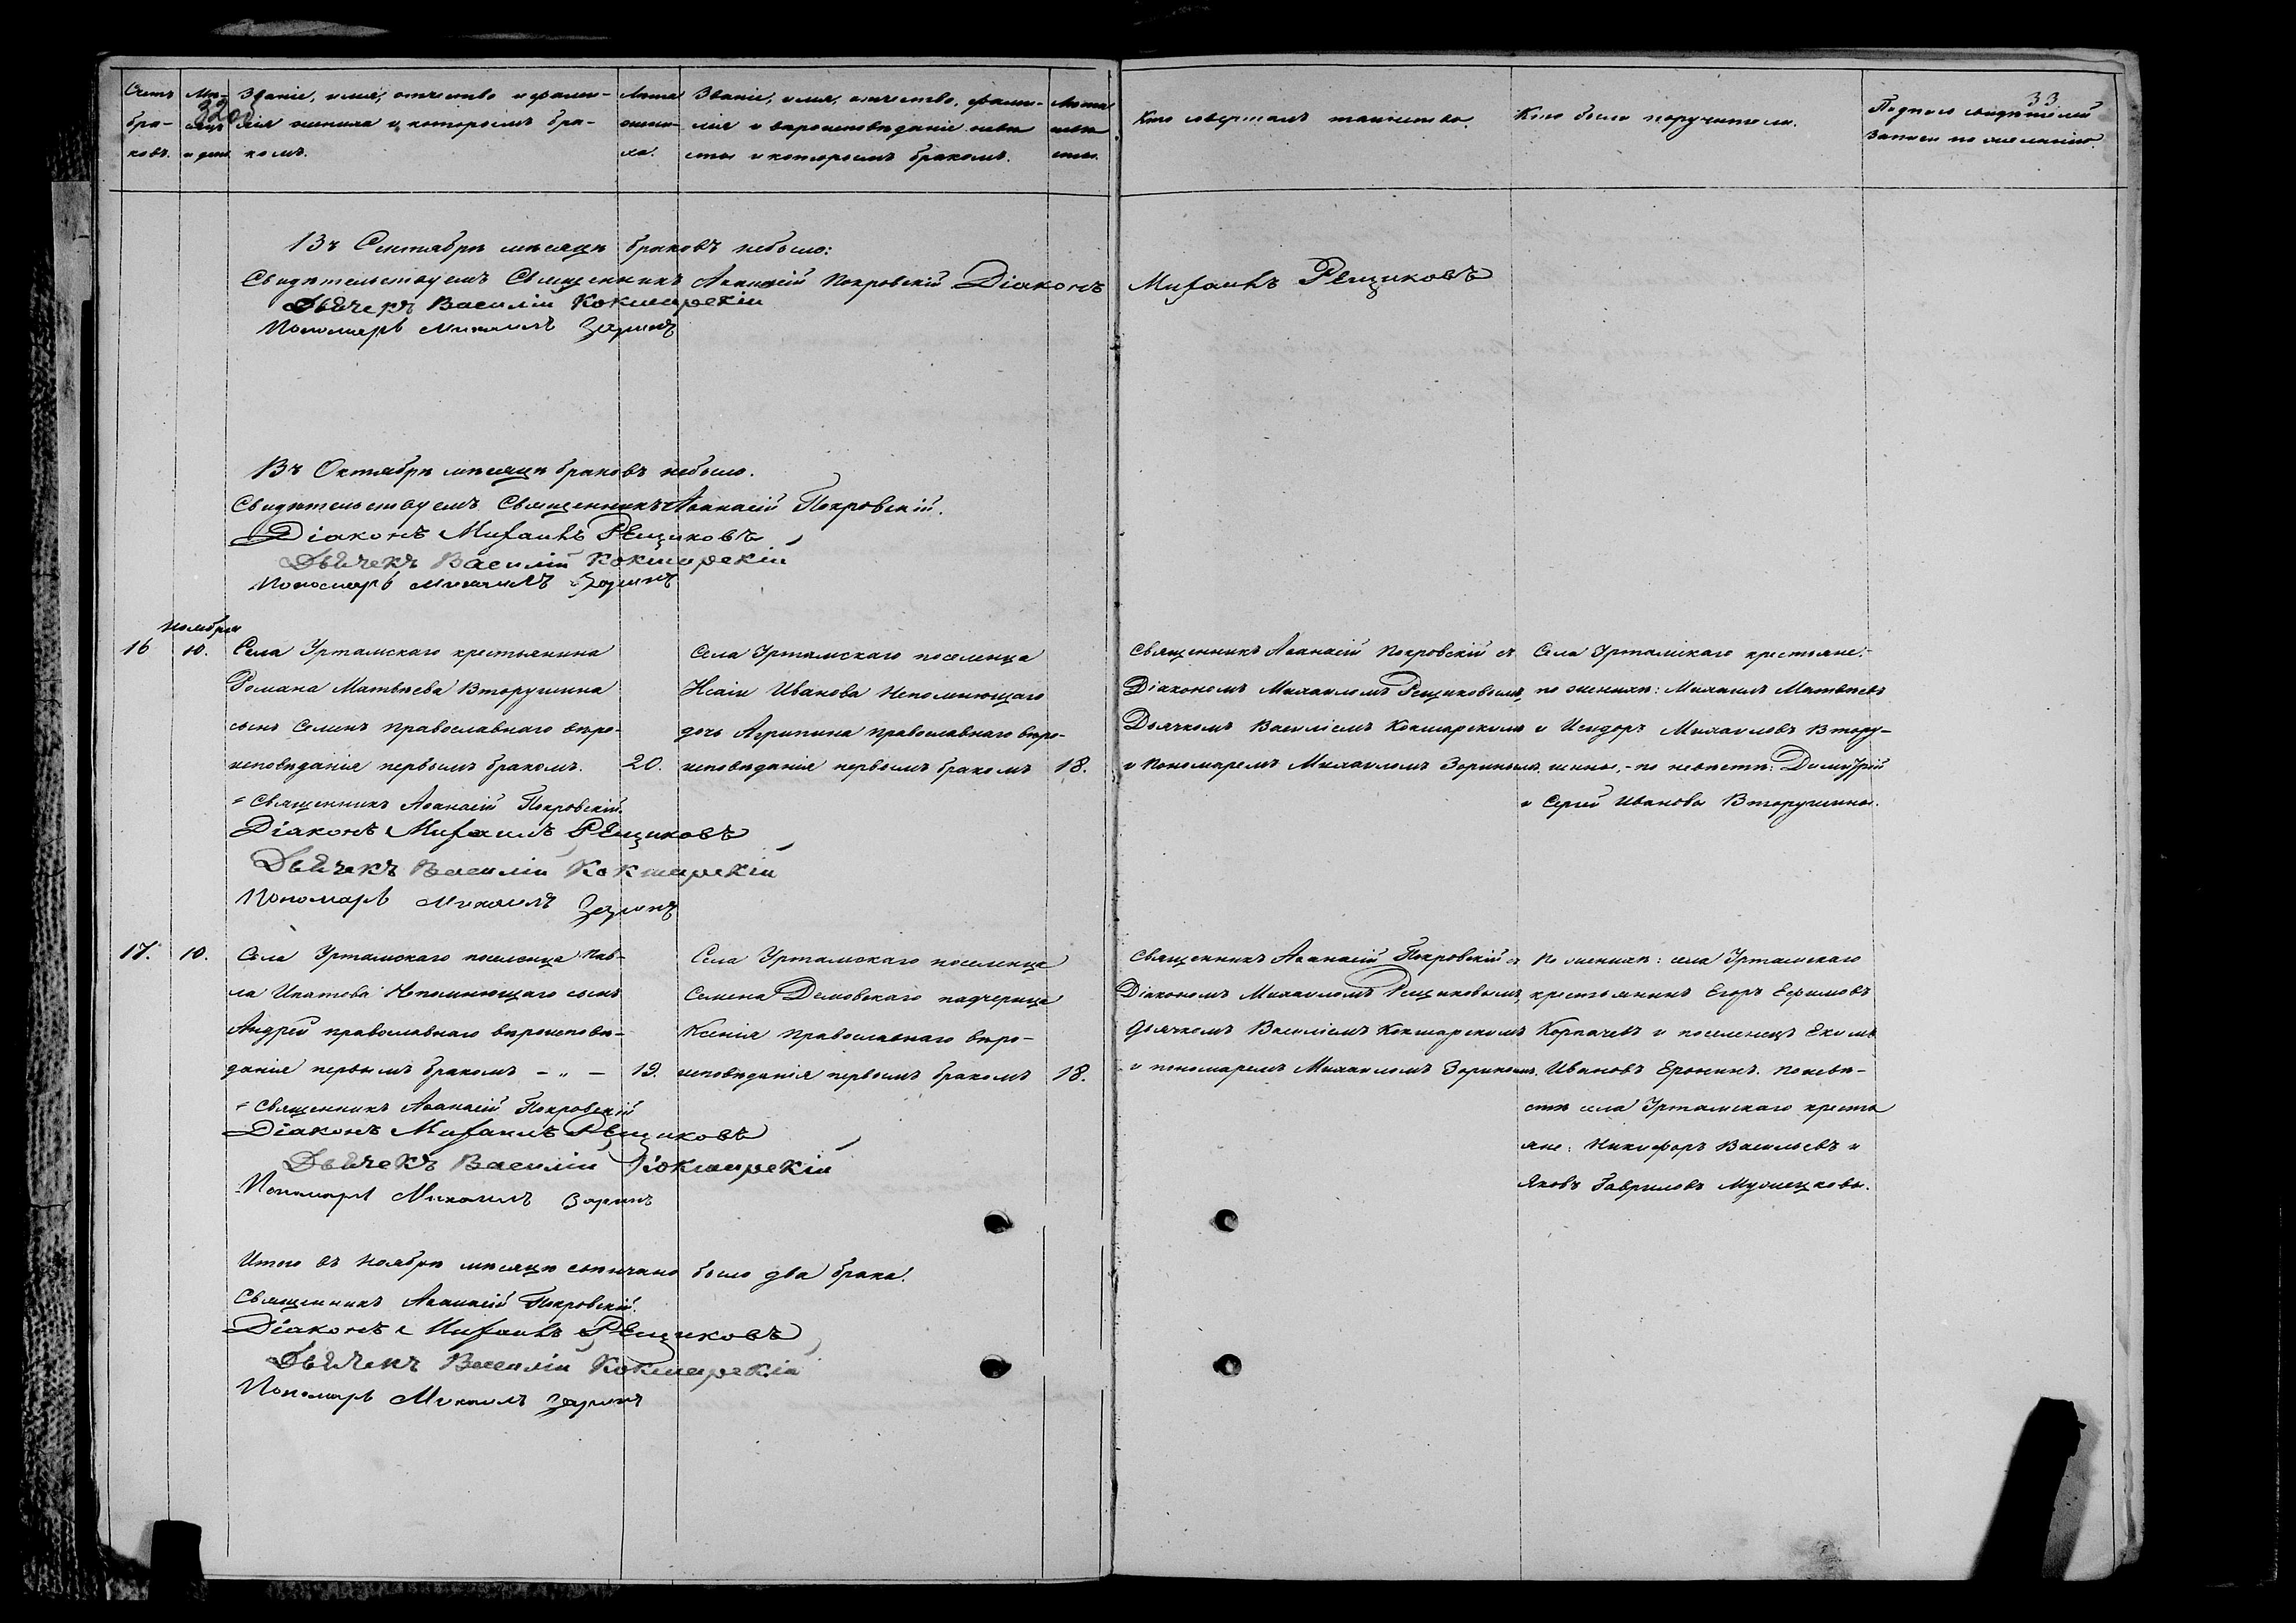 Счетъ бра-ковъ.
Мѣ-сяцъ и день
320
Званіе, имя, отчество и фами-
лія жениха и которымъ бра-
комъ.
Лѣта жени-ха.
Званіе, имя, отчество, фами-
лія и вѣроисповѣданіе невѣ
сты и которымъ бракомъ.
Лѣта невѣ сты.
Кто совершалъ таинство.
Кто были поручители.
33
Подпись свидѣтелей
записи по желанію.
Въ Сентябрѣ мѣсяцѣ браковъ небыло:
Свидѣтельствуемъ Священникъ Аѳанасій Покровскій Діаконъ Михаилъ Рещиковъ
Дьячекъ Василій Кокшарскій
Пономарь Михаилъ Зоринъ
Въ Октябрѣ мѣсяцѣ браковъ небыло.
Свидѣтельствуемъ Священникъ Аѳанасій Покровскій.
Діаконъ Михаилъ Рещиковъ
Дьячекъ Василій Кокшарскій
Пономарь Михаилъ Зоринъ
Ноября
16
10.
Села Уртамскаго крестьянина
Романа Матвѣева Вторушина
сынъ Семенъ православнаго вѣро-
исповѣданія первымъ бракомъ.
20.
Села Уртамскаго поселенца
Исаіи Иванова Непомнющаго
дочь Агрипина православнаго вѣро-
исповѣданія первымъ бракомъ
18.
Священникъ Аѳанасій Покровскій съ
Діакономъ Михаиломъ Рещиковымъ,
Дьячкомъ Василіемъ Кокшарскимъ
и Пономаремъ Михаиломъ Зоринымъ.
Села Уртамскаго крестьяне:-
по женихѣ: Михаилъ Матвѣевъ
и Исидоръ Михаиловъ Втору-
шины, - по невѣстѣ: Димитрій
и Сергей Ивановы Вторушины.
Священникъ Аѳанасій Покровскій.
Діаконъ Михаилъ Рещиковъ
Дьячекъ Василій Кокшарскій
Пономарь Михаилъ Зоринъ
17.
10.
Села Уртамскаго поселенца Пав-
ла Игнатова Непомнющаго сынъ
Андрей православнаго вѣроисповѣ-
данія первымъ бракомъ - „ -
19.
Села Уртамскаго поселенца
Семена Демовскаго падчерица
Ксенія православнаго вѣро-
исповѣданія первымъ бракомъ
18.
Священникъ Аѳанасій Покровскій съ
Діакономъ Михаиломъ Рещиковымъ,
дьячкомъ Василіемъ Кокшарскимъ
и пономаремъ Михаиломъ Зоринымъ.
По женихѣ: села Уртамскаго
крестьянинъ Егоръ Ефимовъ
Корпачевъ и поселенецъ Екимъ
Ивановъ Еронинъ. По невѣ-
стѣ села Уртамскаго кресть
яне: Никифоръ Васильевъ и
Яковъ Гавриловъ
Священникъ Аѳанасій Покровскій
Діаконъ Михаилъ Рещиковъ
Дьячекъ Василій Кокшарскій
Пономарь Михаилъ Зоринъ
Итого въ Ноябрѣ мѣсяцѣ свѣнчано было два брака.
Священникъ Аѳанасій Покровскій.
Діаконъ Михаилъ Рещиковъ
Дьячекъ Василій Кокшарскій
Пономарь Михаилъ Зоринъ